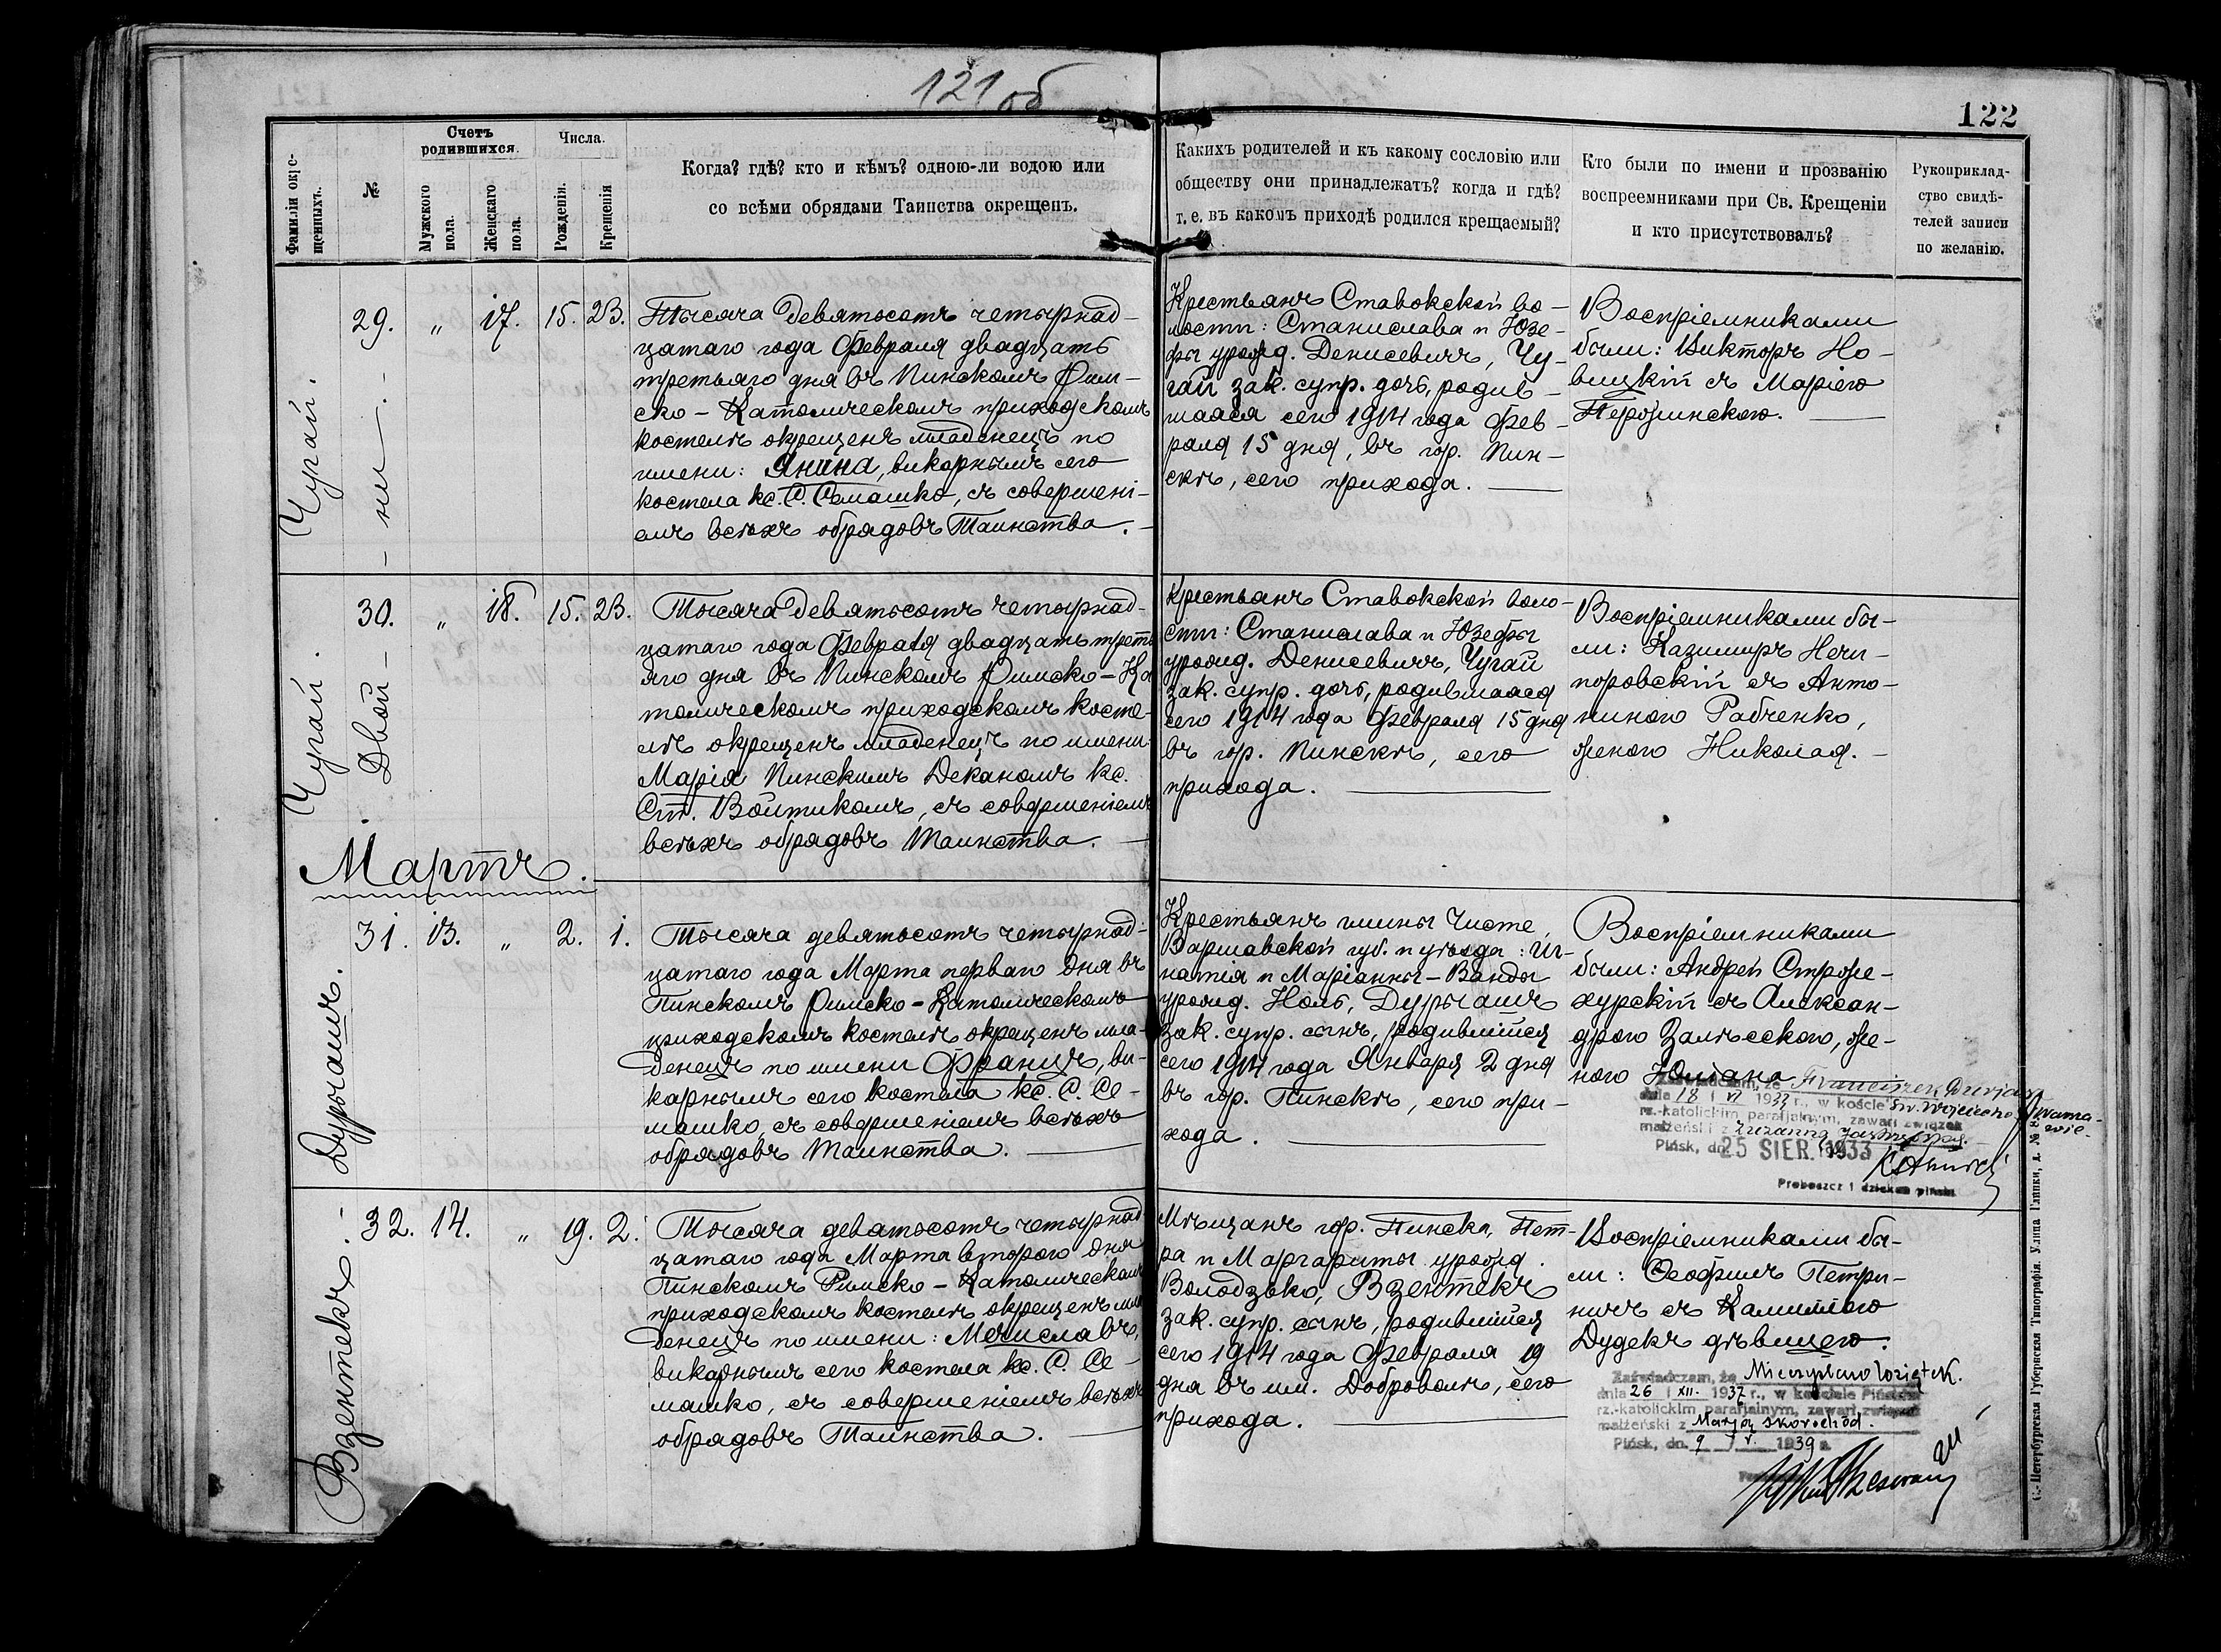 121 об
122
Фамиліи окре-
щенныхъ.
№
Счетъ
родившихся.
Мужскаго
пола.
Женскаго
пола.
Числа.
Рожденія.
Крещенія
Когда? гдѣ? кто и кѣмъ? одною-ли водою или
со всѣми обрядами Таинства окрещенъ.
Какихъ родителей и къ какому сословію или
обществу они принадлежатъ? когда и гдѣ?
т. е. въ какомъ приходѣ родился крещаемый?
Кто были по имени и прозванію
воспреемниками при Св. Крещеніи
и кто присутствовалъ?
Рукоприклад-
ство свидѣ-
телей записи
по желанію.
Чугай.
- ни -
29. " 17. 15. 23.
Тысяча девятьсотъ четырнад-
цатаго года Февраля двадцать
третьяго дня въ Пинскомъ Рим-
ско-Католическомъ приходскомъ
костелѣ окрещенъ младенецъ по
имени: Янина, викарнымъ сего
костела кс. С. Семашко, съ совершені-
емъ всѣхъ обрядовъ Таинства.
Крестьянъ Ставокской во-
лости: Станислава и Юзе-
фы урожд. Денисевичъ, Чу-
гай зак. супр. дочь, родив-
шаяся сего 1914 года Фев-
раля 15 дня, въ гор. Пин-
скѣ, сего прихода.
Воспріемниками
были: Викторъ Но-
вицкій съ Маріею
Перожинскою.
Чугай.
Двой -
30. " 18. 15. 23.
Тысяча девятьсотъ четырнад-
цатаго года Февраля двадцать треть
яго дня въ Пинскомъ Римско-Ка
толическомъ приходскомъ косте-
лѣ окрещенъ младенецъ по имени:
Марія Пинскимъ Деканомъ кс.
Ст. Войтикомъ, съ совершеніемъ
всѣхъ обрядовъ Таинства.
Крестьянъ Ставокской воло-
сти: Станислава и Юзефы
урожд. Денисевичъ, Чугай
зак. супр. дочь, родившаяся
сего 1914 года Февраля 15 дня
въ гор. Пинскѣ, сего
прихода.
Воспріемниками бы-
ли: Казимиръ Нечи-
поровскій съ Анто-
ниною Рабченко,
женою Николая.
Мартъ.
Дурыашъ.
31. 13. " 2. 1.
Тысяча девятьсотъ четырнад-
цатаго года Марта перваго дня въ
Пинскомъ Римско-Католическомъ
приходскомъ костелѣ окрещенъ мла-
денецъ по имени Францъ, ви-
карнымъ сего костела кс. С. Се-
машко, съ совершеніемъ всѣхъ
обрядовъ Таинства.
Крестьянъ гмины Чисте,
Варшавской губ. и уѣзда: Иг-
натія и Маріанны-Ванды
урожд. Ноль, Дурыашъ
зак. супр. сынъ, родившійся
сего 1914 года Января 2 дня
въ гор. Пинскѣ, сего при-
хода.
Воспріемниками
были: Андрей Строже-
хурскій съ Алексан-
дрою Залѣсскою, же-
ною Юліана
Zaświadczam, że Franciszek Durjasz
dnia 18 / VI 1933 r., w kościele św. Wojciecha
rz.-katolickim parafjalnym, zawarł związek
małżeński z Zuzanną
Pińsk, dn. 25 SIER. 1933
Proboszcz i dziekan piński
Взентекъ.
32. 14. " 19. 2.
Тысяча девятьсотъ четырнад
цатаго года Марта второго дня
Пинскомъ Римско-Католическомъ
приходскомъ костелѣ окрещенъ мла
денецъ по имени: Мечиславъ,
викарнымъ сего костела кс. С. Се-
машко, съ совершеніемъ всѣхъ
обрядовъ Таинства.
Мѣщанъ гор. Пинска, Пет-
ра и Маргариты урожд.
Володзько, Взентекъ
зак. супр. сынъ, родившійся
сего 1914 года Февраля 19
дня въ им. Доброволѣ, сего
прихода.
Воспріемниками бы-
ли: Ѳеофилъ Петри-
ничъ съ Камиллою
Дудекъ дѣвицею.
Zaświadczam, że Mieczysław Wziętek.
dnia 26 / XII. 1937 r., w kościele Pińskim
rz.-katolickim parafjalnym, zawarł związek
małżeński z Marją Skorochód.
Pińsk, dn. 9 / V. 1939 r.
С.-Петербургская Губернская Типографія. Улица Глинки, д. № 8.